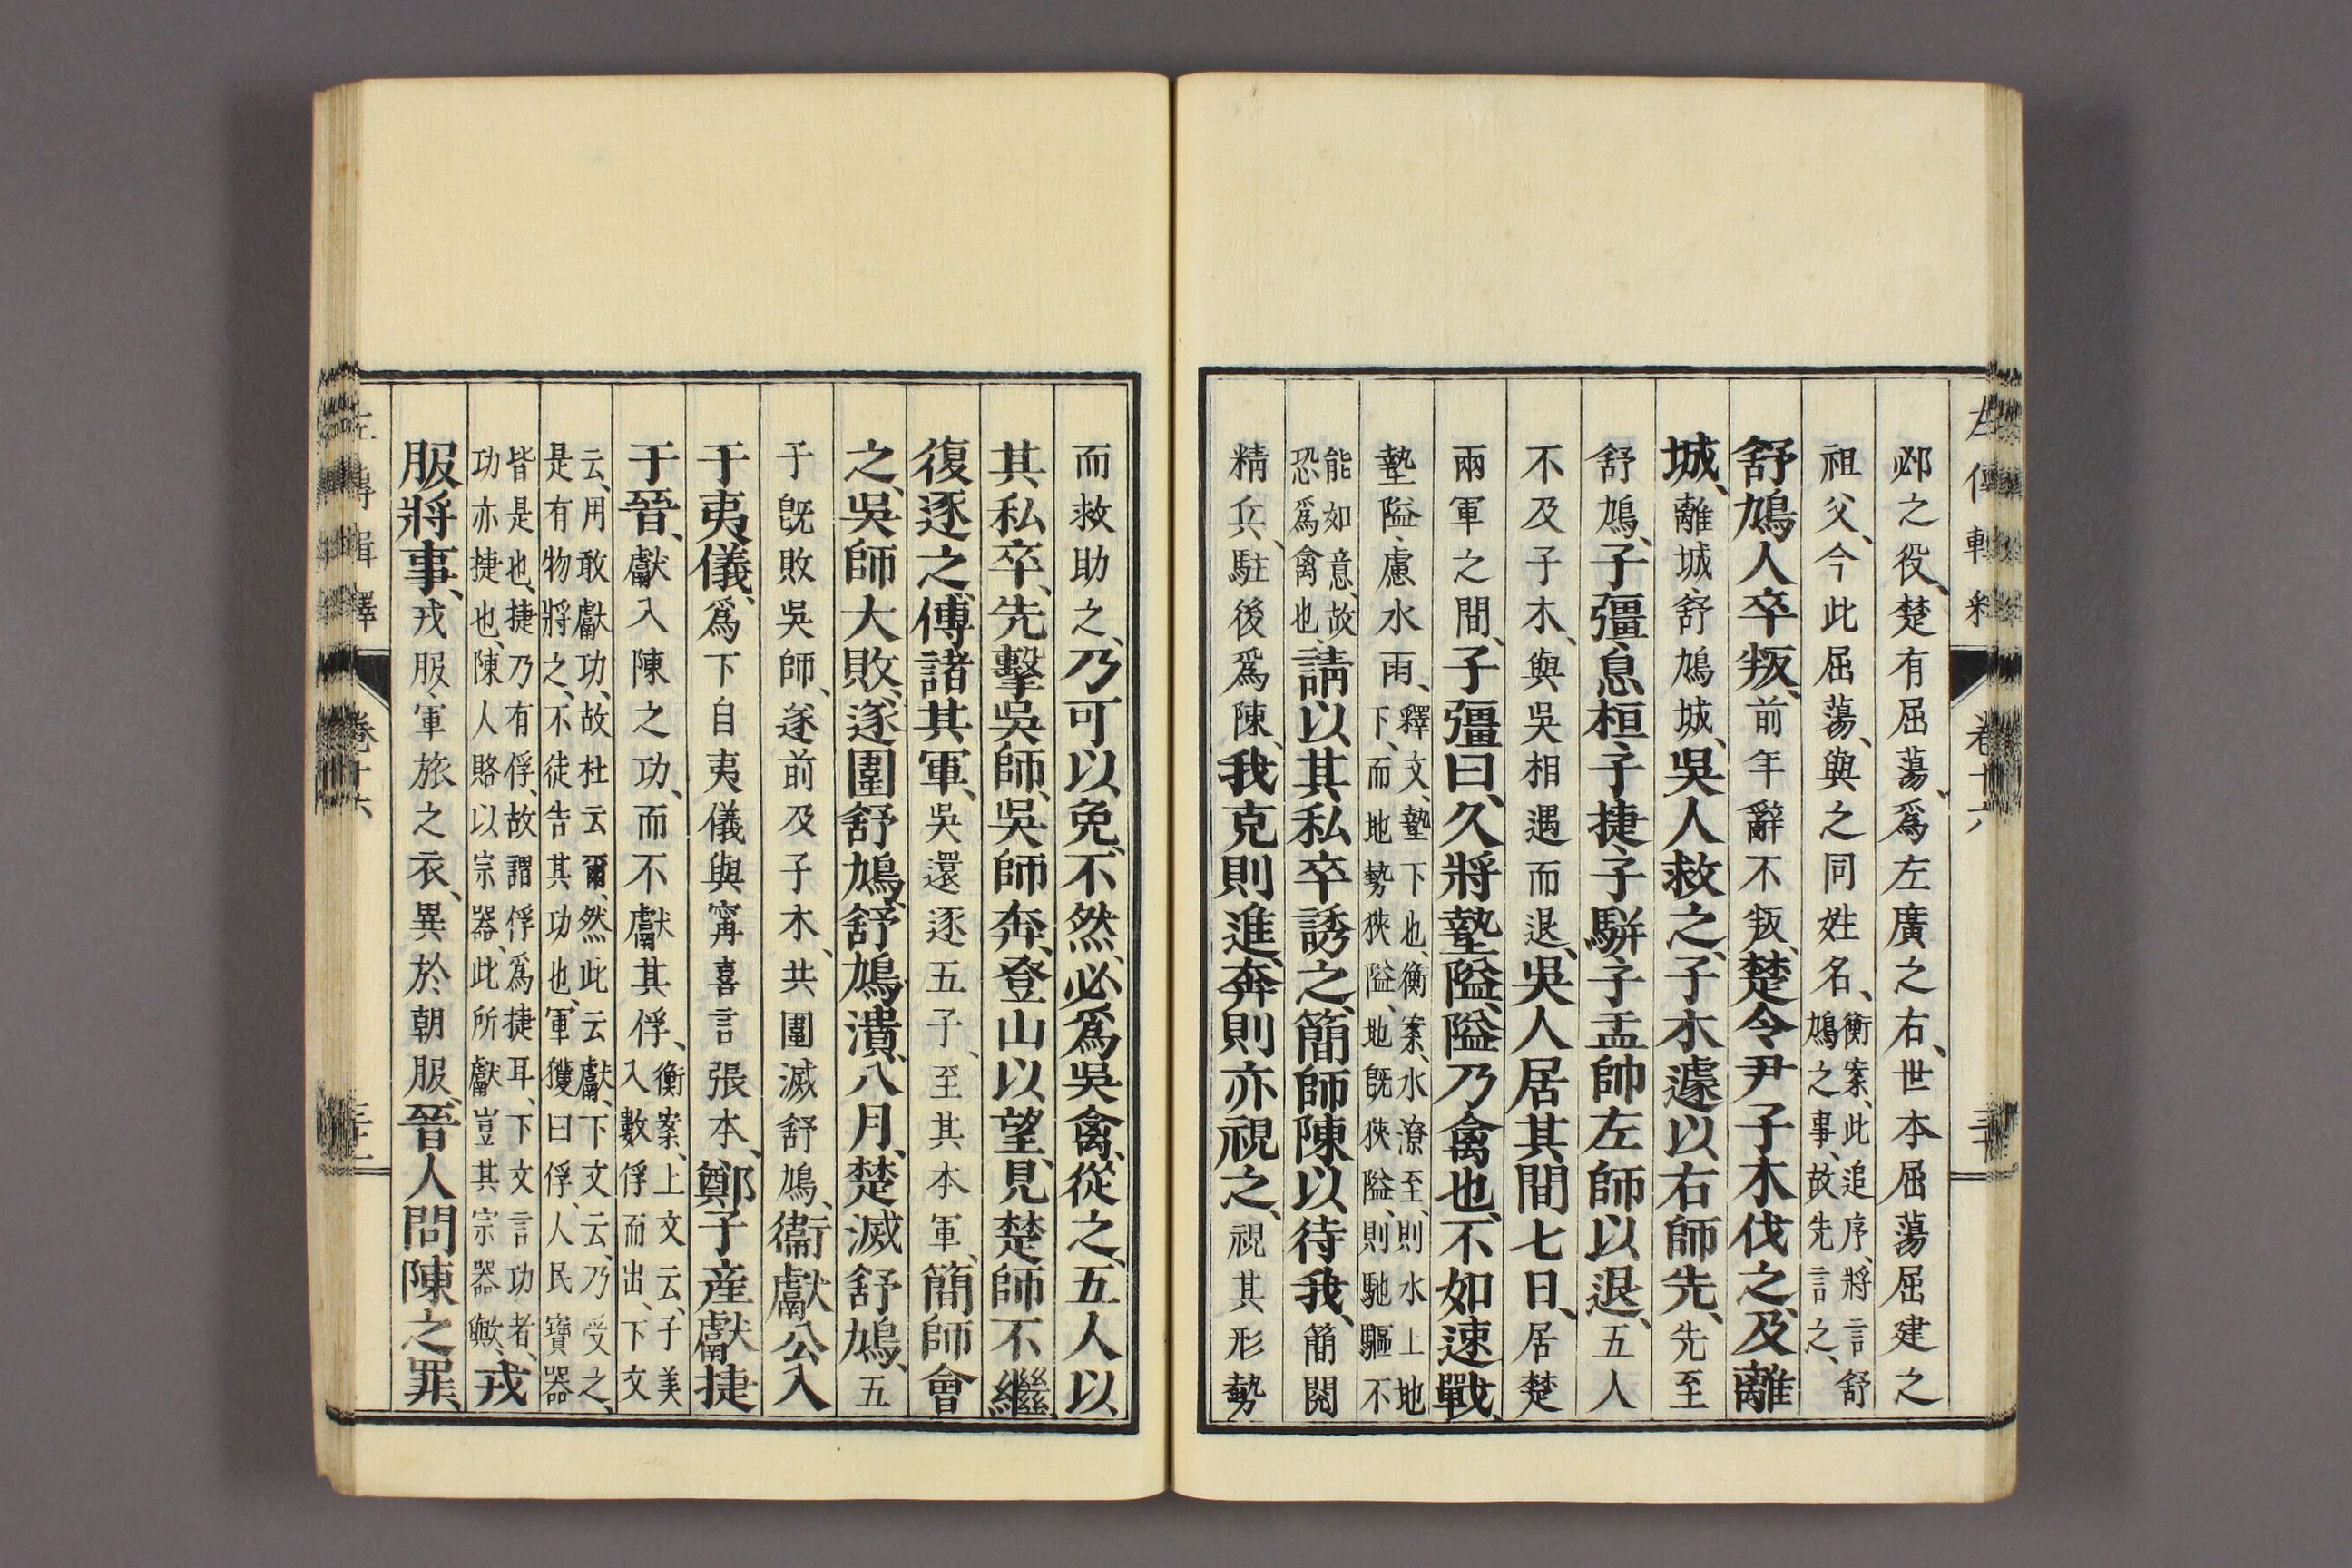 邲之役、楚有屈蕩、爲左廣之右、世本屈蕩屈建之
祖父、今此屈蕩、與之同姓名、衡案、此追序、將言舒鳩之事、故先言之、
舒鳩人卒叛、前年辭不叛、楚令尹子木伐之、及離
城、離城、舒鳩城、吳人救之、子木遽以右師先、先至
舒鳩、子彊息桓子捷子駢子盂帥左師以退、五人
不及子木、與吳相遇而退、吳人居其間七日、居楚
兩軍之間、子彊曰、久將墊隘、隘乃禽也、不如速戰、
墊隘、慮水雨、釋文、墊下也、衡案、水潦至、則水上地下、而地勢狹隘、地既狹隘、則馳驅不
能如意、故恐爲禽也、請以其私卒誘之、簡師陳以待我、簡閱
精兵、駐後爲陳、我克則進、奔則亦視之、視其形勢
而救助之、乃可以免、不然、必爲吳禽、從之、五人以
其私卒、先擊吳師、吳師奔、登山以望、見楚師不繼、
復逐之、傅諸其軍、吳還逐五子、至其本軍、簡師會
之、吳師大敗、遂圍舒鳩、舒鳩潰、八月、楚滅舒鳩、五
子既敗吳師、遂前及子木、共圍滅舒鳩、衞獻公入
于夷儀、爲下自夷儀與甯喜言張本、鄭子產獻捷
于晉、獻入陳之功、而不獻其俘、衡案、上文云、子美入數俘而出、下文
云、用敢獻功、故杜云爾、然此云獻、下文云、乃受之、是有物將之、不徒告其功也、軍獲曰俘、人民寶器
皆是也、捷乃有俘、故謂俘爲捷耳、下文言功者、功亦捷也、陳人賂以宗器、此所獻豈其宗器歟、戎
服將事、戎服、軍旅之衣、異於朝服、晉人問陳之罪、
左傳輯釋
卷十六